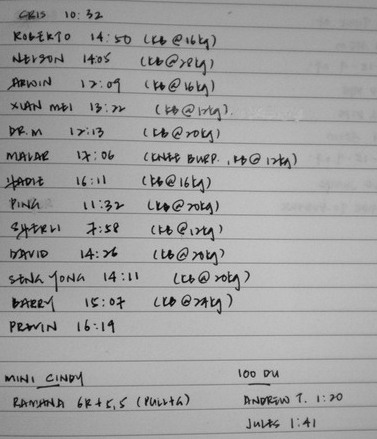 CRIS 10:32
ROBERTO 14:50 (KB @ 16kg)
NELSON 14:05 (KB @ 28kg)
ARWIN 12:09 (KB @ 16kg)
XIAN MEI 13:22 (KB @ 12kg).
DR. M 12:13 (KB @ 20kg)
MALAR 17:06 (KNEE BURP., KB @ 12kg)
HADIE 16:11 (KB @ 16kg)
PING 11:32 (KB @ 20kg)
SHERLI 7:58 (KB @ 12kg)
DAVID 14:26 (KB @ 20kg)
SENG YONG 14:11 (KB @ 20kg)
BARRY 15:07 (KB @ 24kg)
PREVIN 16:19
MINI CINDY
RAMANA 6R + 5,5 (PULL+G)
100 DU
ANDREW T. 1:20
JULES 1:41